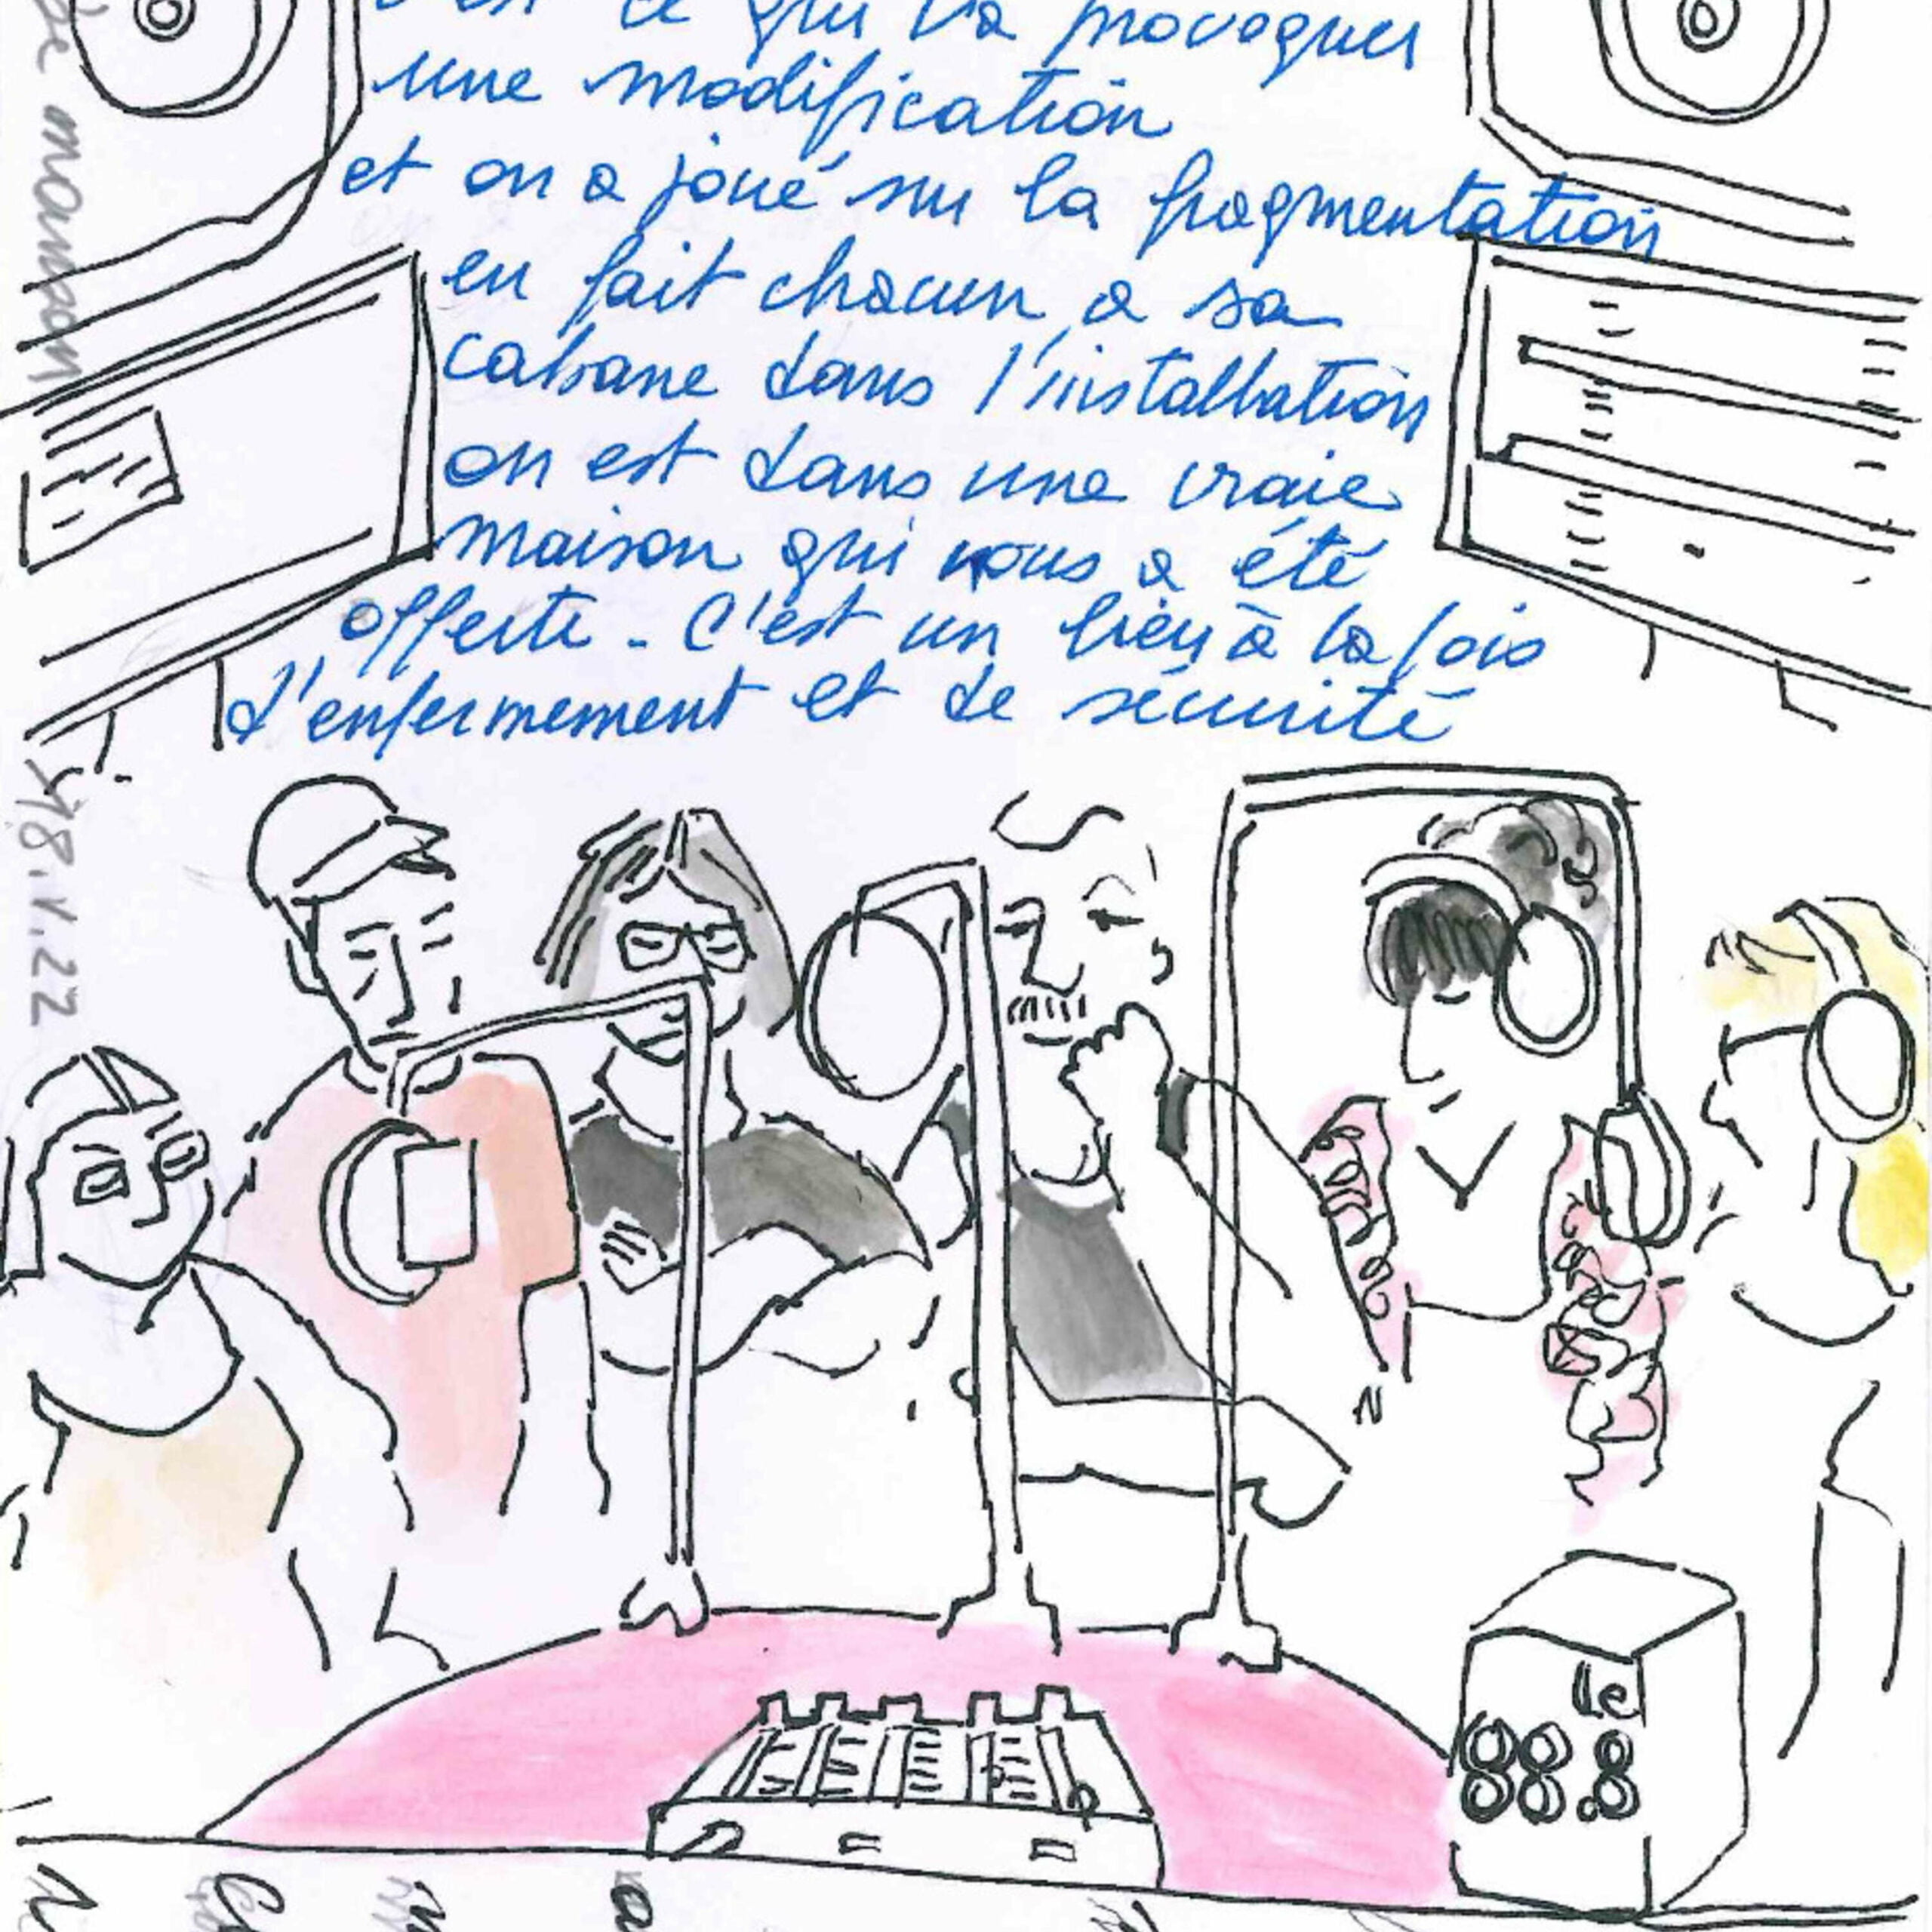 c'est ce qui va provoquer
une modification
et on a joué sur la fragmentation
en fait chacun a sa
cabane dans l'installation
on est dans une vraie
maison qui nous a été
offerte - C'est un lieu à la fois
d'enfermement et de sécurité
18.V.22
le
88.8